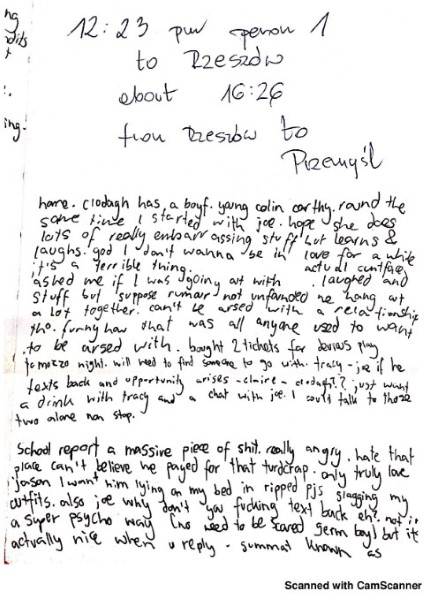 ng
odits
t
ing.
12:23 pm person 1
to Rzeszów
about 16:26
from Rzeszów to
Przemyśl
home. clodagh has a boyf. young colin carthy. round the
same time I started with joe. hope she does
lots of really embarrassing stuff but learns &
laughs. god I don't wanna be in love for a while
it's a terrible thing. actual
asked me if I was going out with . laughed and
stuff but suppose rumour not unfounded we hang out
a lot together. can't be arsed with a relationship
tho. funny how that was all anyone used to want
to be arsed with. bought 2 tickets for devious play
tomozzo night. will need to find someone to go with. tracy - joe if he
texts back and opportunity arises - claire - clodagh? just want
a drink with tracy and a chat with joe. I could talk to those
two alone non stop.
School report a massive piece of shit. really angry. hate that
place can't believe we payed for that turdcrap. only truly love
jason I want him lying on my bed in ripped pjs slagging my
outfits. also joe why don't you fucking text back eh? not in
a super psycho way (no need to be scared germ boy) but its
actually nice when u reply - summat known as
Scanned with CamScanner